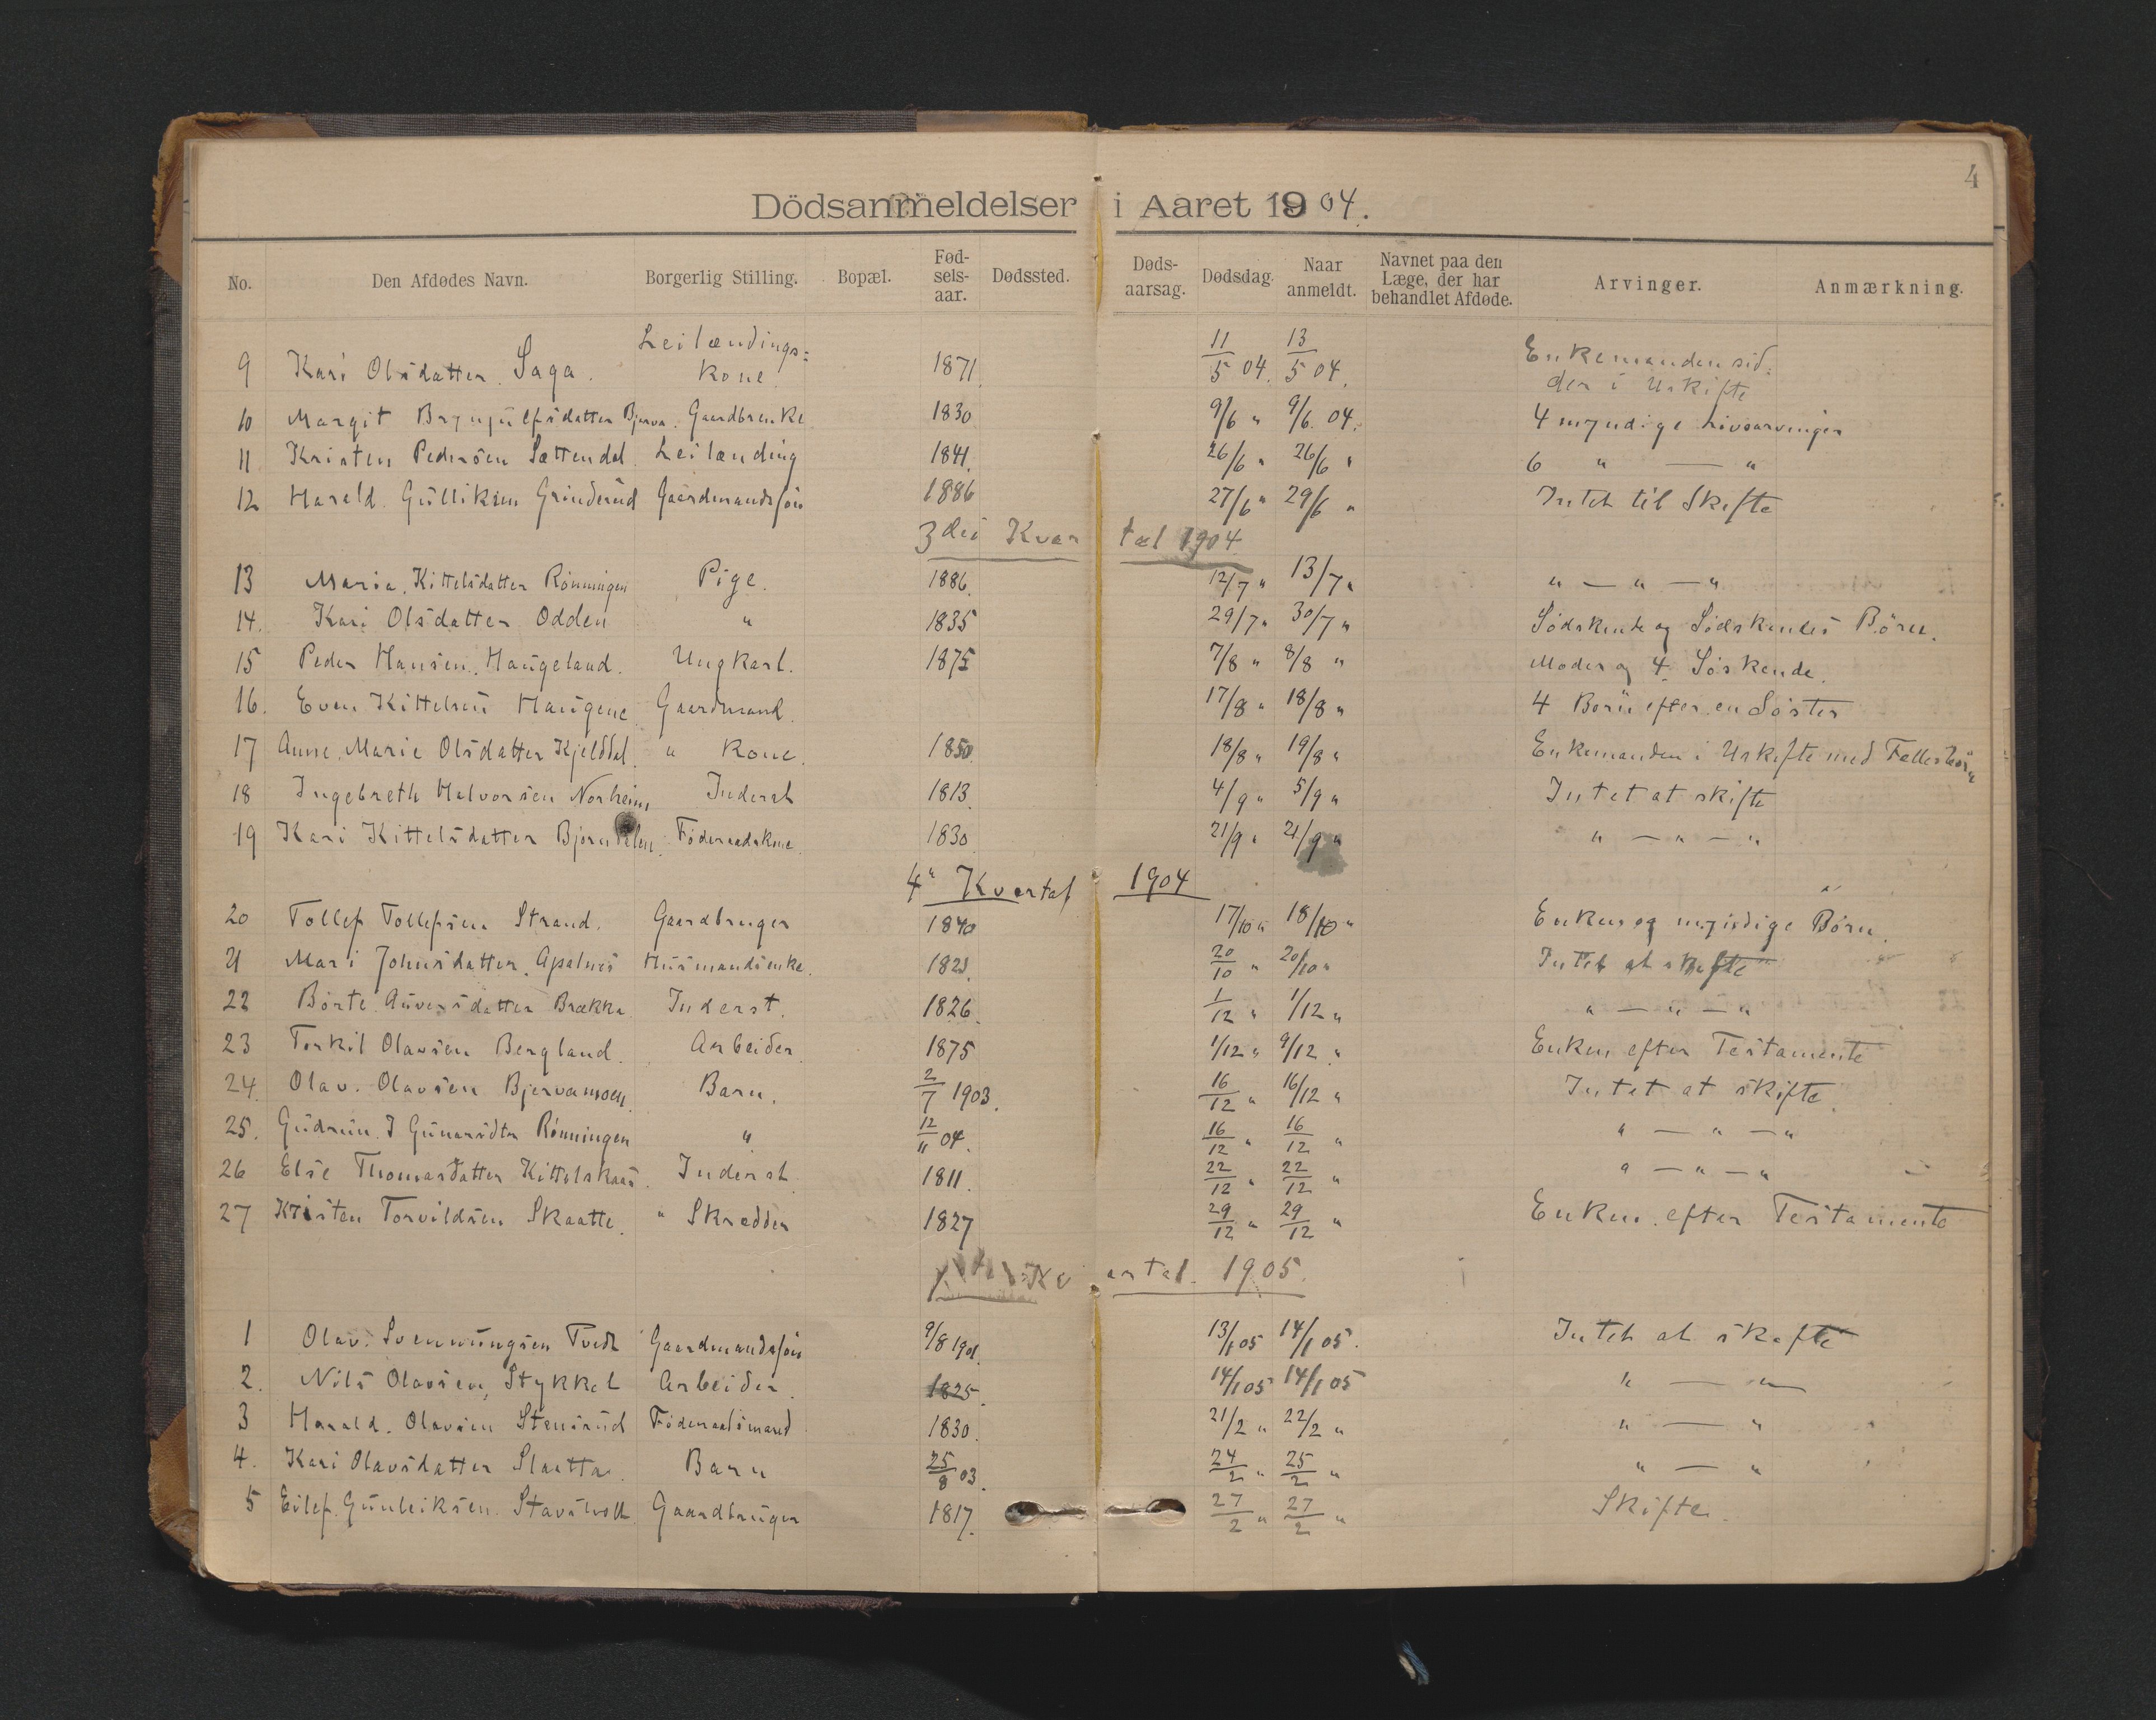 4
Dödsanmeldelser i Aaret 1904.
No. Den Afdødes Navn. Borgerlig Stilling. Bopæl. Fød-sels-aar. Dødssted. Døds-aarsag. Dødsdag. Naar anmeldt. Navnet paa den Læge, der har behandlet Afdøde. Arvinger. Anmærkning.
9 Kari Olsdatter Saga. Leilændings= Kone 1871 11/5 04. 13/5 04. Enkemanden sid= der i Uskifte
10 Margit Brynjulfsdatter Bjerva. Gaardbrenke 1830 9/6 " 9/6 04. 4 myndige Livsarvinger
11 Kristen Pedersen Sættendal Leilænding 1841. 26/6 " 26/6 " 6 " — "
12 Harald Gulliksen Grinderud Gaardmandssøn 1886 27/6 " 29/6 " Intet til Skifte
3die Kvartal 1904
13 Maria Kittelsdatter Rønningen Pige. 1886. 12/7 " 13/7 " " — " — "
14. Kari Olsdatter Odden " 1835 29/7 " 30/7 " Sødskende og Sødskendes Børn.
15 Peder Hansen Haugeland. Ungkarl. 1875 7/8 " 8/8 " Moder og 4 Søskende.
16. Even Kittelsen Haugene Gaardmand. 17/8 " 18/8 " 4 Børn efter en Søster
17 Anne Marie Olsdatter Kjelddal. " Kone. 1850 18/8 " 19/8 " Enkemanden i Uskifte med Fellesbørn
18 Ingebreth Halvorsen Norheim Inderst 1813. 4/9 " 5/9 " Intet at skifte
19 Kari Kittelsdatter Bjorndalen. Føderaadskone 1830 21/9 " 21/9 " " — " — "
4" Kvartal 1904
20 Tollef Tollefsen Strand. Gaardbruger 1840 17/10 " 18/10 " Enken og myndige Børn.
21 Mari Johnsdatter Apalnes Husmandsenke. 1821. 20/10 " 20/10 " Intet at skifte
22 Børte Auversdatter Brækka Inderst. 1826. 1/12 " 1/12 " " — " — "
23 Torkil Olavsen Bergland. Arbeider 1875 1/12 " 9/12 " Enken efter Testamente
24. Olav. Olavsen Bjervamoen Barn. 2/7 1903. 16/12 " 16/12 " Intet at skifte.
25. Gudrun J Gunarsdtr Rønningen " 12/11 04. 16/12 " 16/12 " " — " — "
26 Else Thomasdatter Kittelskaas. Inderst 1811. 22/12 " 22/12 " " — " — "
27 Kristen Torvildsen Skaatte. " Skredder 1827 29/12 " 29/12 " Enken efter Testamente
1 Kvartal 1905.
1 Olav. Svennungsen Tvedt Gaardmandssøn 9/8 1901. 13/1 05 14/1 05. Intet at skifte
2. Nils Olavsen Stykket Arbeider 1825. 14/1 05 14/1 05 " — "
3 Harald. Olavsen Stensrud Føderaadsmand 1830. 21/2 " 22/2 " " — "
4. Kari Olavsdatter Slaatta. Barn 25/8 03. 24/2 " 25/2 " " — "
5 Eilef. Gunleiksen. Stavsholt Gaardbruger 1817. 27/2 " 27/2 " Skifte.